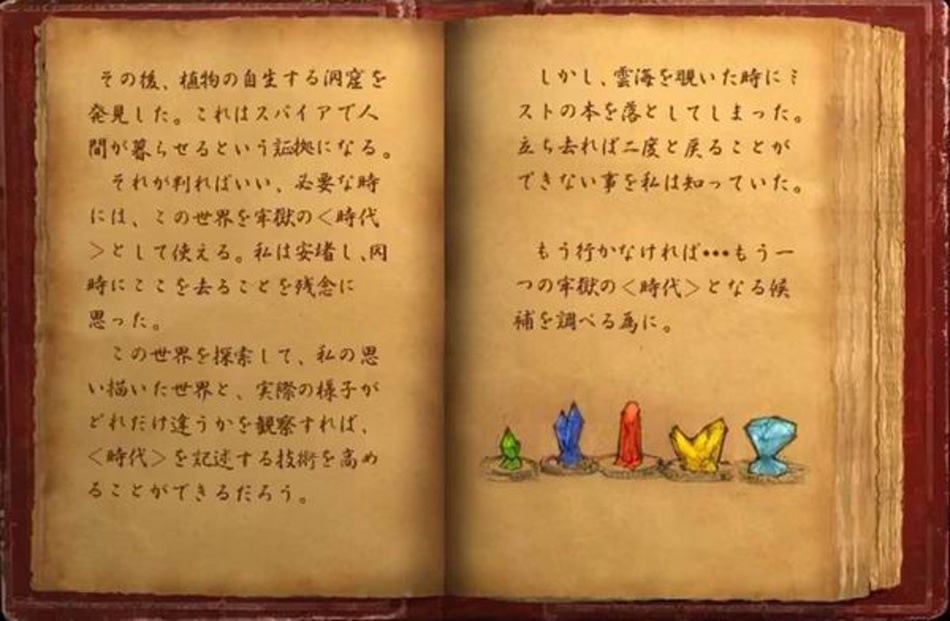 その後、植物の自生する洞窟を
発見した。これはスパイアで人
間が暮らせるという証拠になる。
それが判ればいい、必要な時
には、この世界を牢獄の＜時代
＞として使える。私は安堵し、同
時にここを去ることを残念に
思った。
この世界を探索して、私の思
い描いた世界と、実際の様子が
どれだけ違うかを観察すれば、
＜時代＞を記述する技術を高め
ることができるだろう。
しかし、雲海を覗いた時にミ
ストの本を落としてしまった。
立ち去れば二度と戻ることが
できない事を私は知っていた。
もう行かなければ•••もう一
つの牢獄の＜時代＞となる候
補を調べる為に。